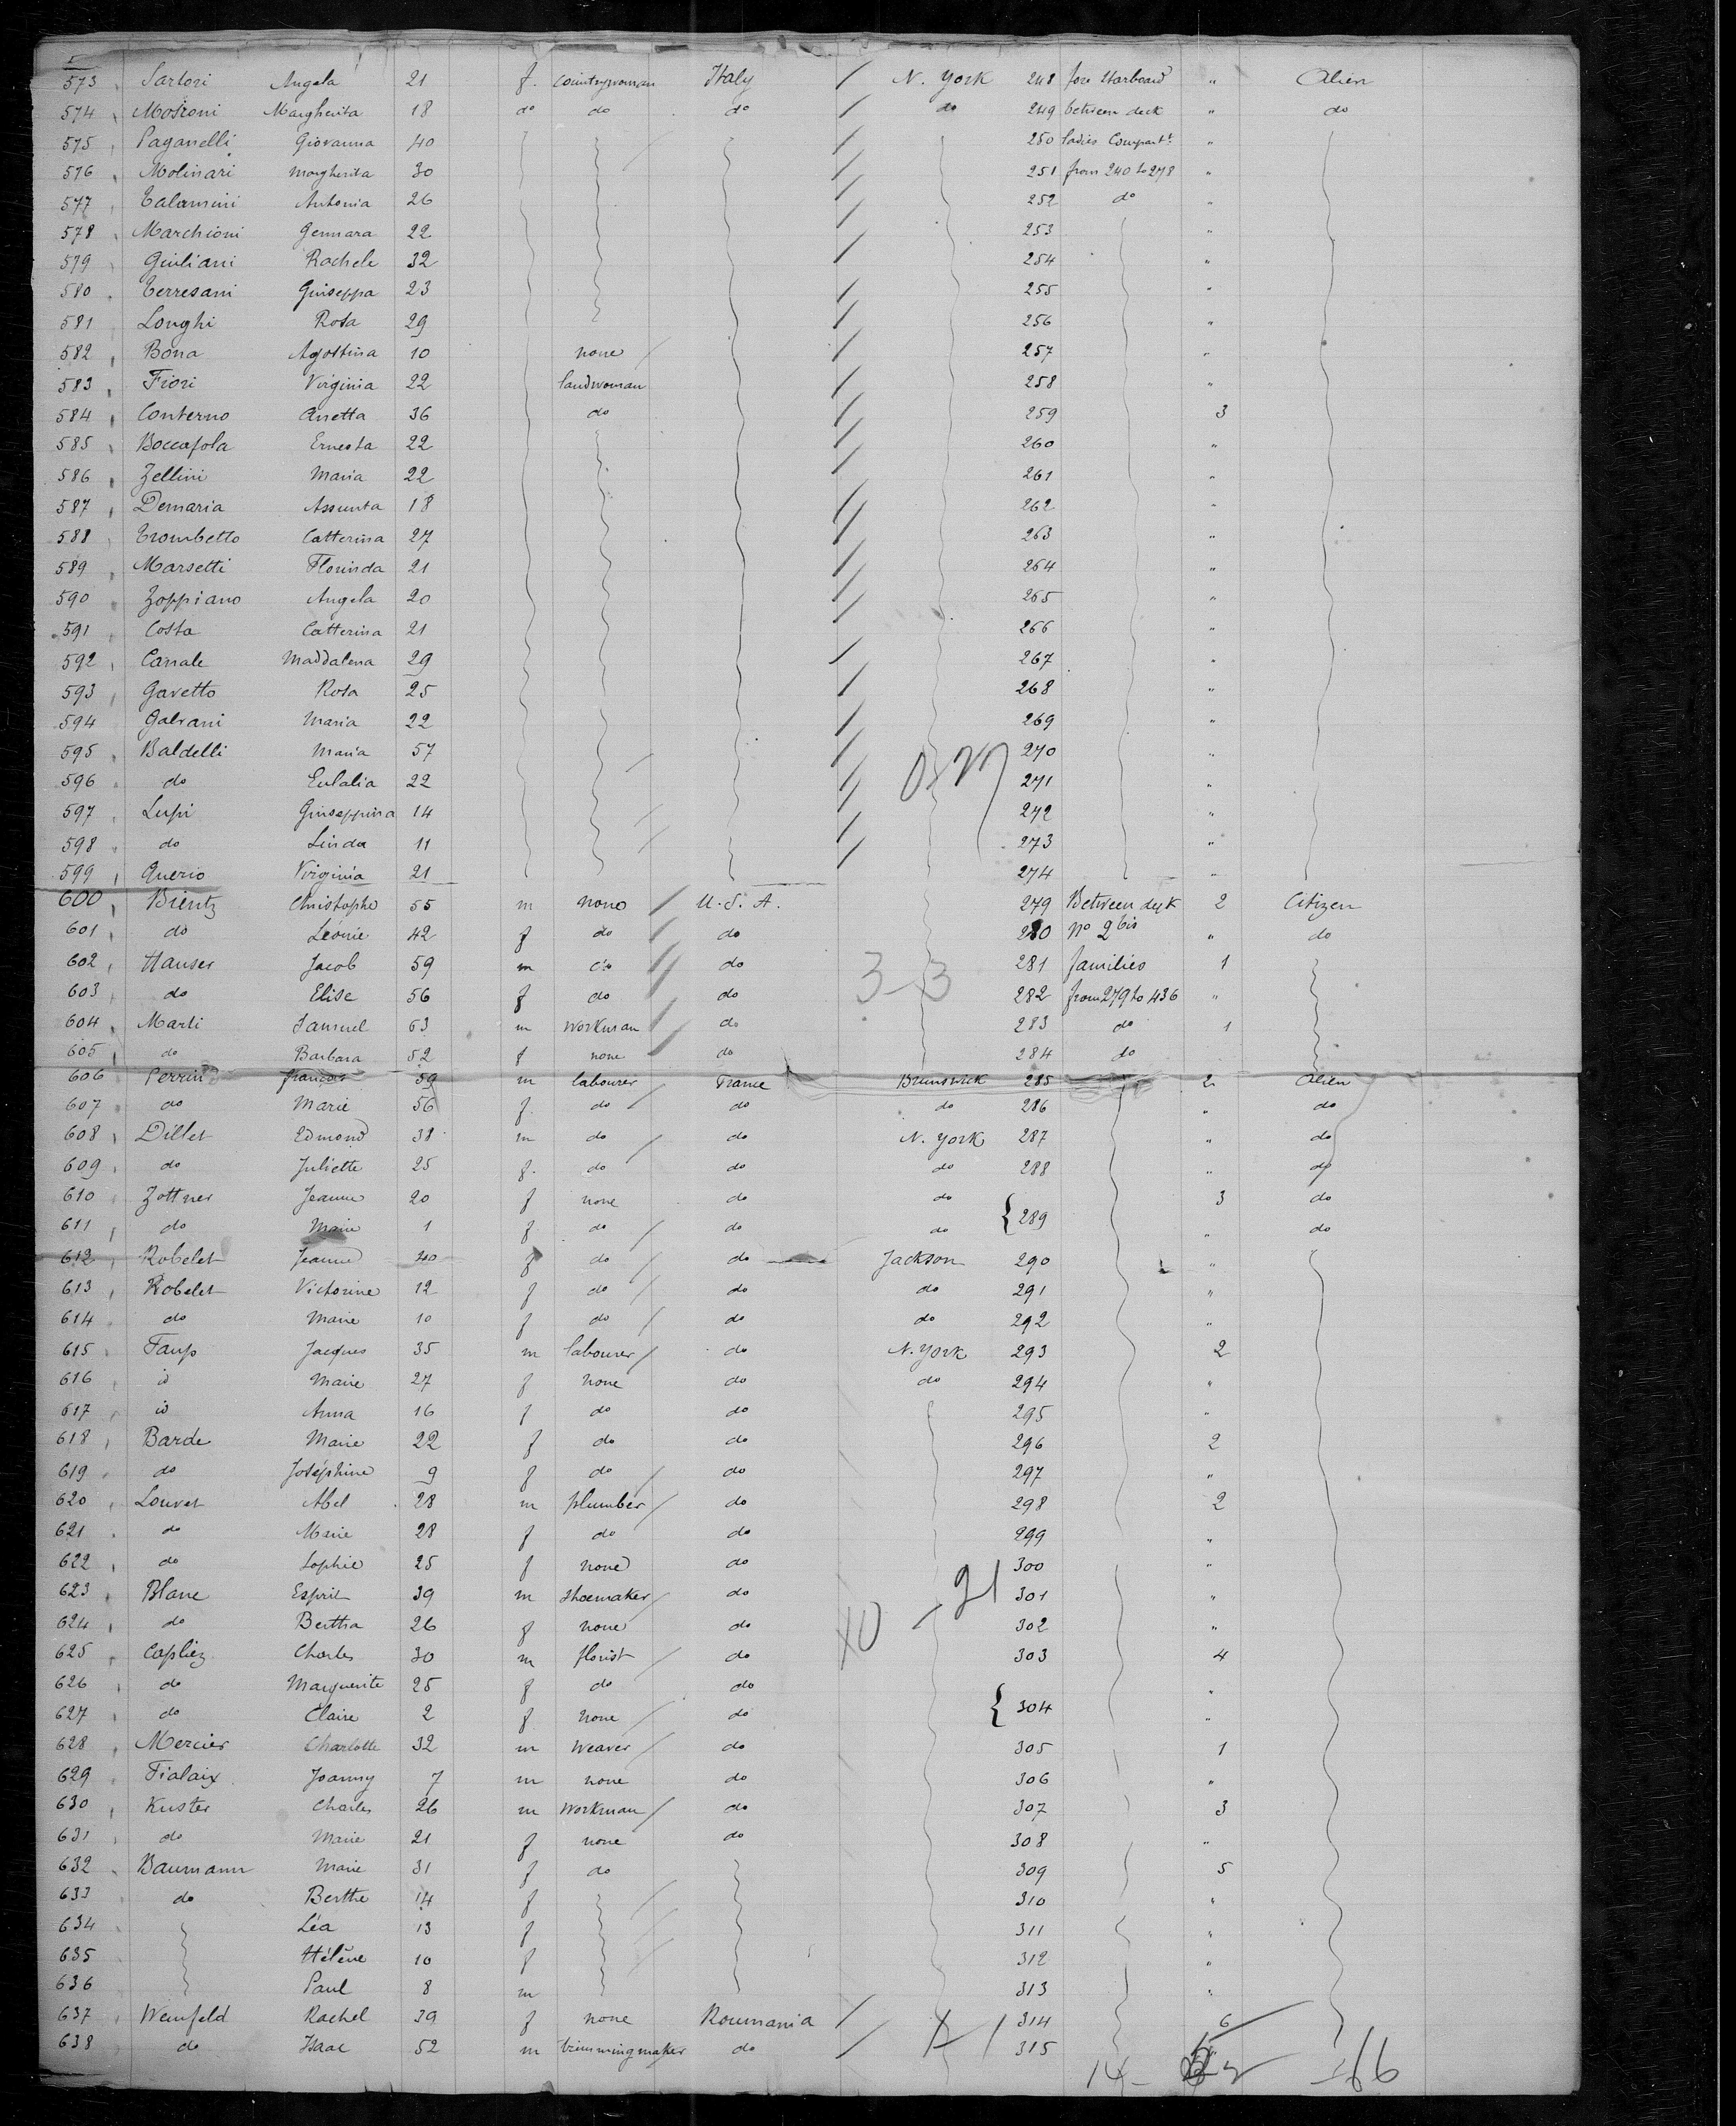 573 Sartori Angela 21 f. countrywoman Italy N. York 248 fore starboard " Alien
574 Mosroni Margherita 18 do do do do 249 between deck " do
575 Paganelli Giovanna 40 250 ladies Compartt. "
576 Molinari Margherita 30 251 from 240 to 278 "
577 Talamini Antonia 26 252 do "
578 Marchioni Gennara 22 253 "
579 Giuliani Rachele 32 254 "
580 Terresani Giuseppa 23 255 "
581 Longhi Rosa 29 256 "
582 Bona Agostina 10 none 257 "
583 Fiori Virginia 22 landwoman 258 "
584 Conterno Anetta 36 do 259 3
585 Boccafola Ernesta 22 260 "
586 Zellini Maria 22 261 "
587 Demaria Assunta 18 262 "
588 Trombetto Catterina 27 263 "
589 Marsetti Florinda 21 264 "
590 Zoppiano Angela 20 265 "
591 Costa Catterina 21 266 "
592 Canale Maddalena 29 267 "
593 Gavetto Rosa 25 268 "
594 Galvani Maria 22 269 "
595 Baldelli Maria 57 270 "
596 do Eulalia 22 271 "
597 Lupi Giuseppina 14 272 "
598 do Linda 11 273 "
599 Querio Virginia 21 274 "
600 Bientz Christophe 55 m none U.S.A. 279 Between deck 2 Citizen
601 do Leonie 42 f do do 280 No 2 bis " do
602 Hauser Jacob 59 m do do 281 families 1
603 do Elise 56 f do do 3-3 282 from 279 to 436 "
604 Marti Samuel 63 m workman do 283 do 1
605 do Barbara 52 f none do 284 do
606 Perrin francois 59 m labourer France Brunswick 285 2 Alien
607 do Marie 56 f. do do do 286 " do
608 Dillet Edmond 38 m do do N. York 287 " do
609 do Juliette 25 f. do do do 288 " do
610 Zottner Jeanne 20 f none do do { 289 3 do
611 do Marie 1 f do do do " do
612 Robelet Jeanne 40 f do do Jackson 290 "
613 Robelet Victorine 12 f do do do 291 "
614 do Marie 10 f do do do 292 "
615 Faup Jacques 35 m labourer do N. York 293 2
616 id Marie 27 f none do do 294 "
617 id Anna 16 f do do 295 "
618 Barde Marie 22 f do do 296 2
619 do Joséphine 9 f do do 297 "
620 Louvet Abel 28 m plumber do 298 2
621 do Marie 28 f do do 299 "
622 do Sophie 25 f none do 300 "
623 Blanc Esprit 39 m shoemaker do 21 301 "
624 do Bertha 26 f none do 302 "
625 Capliez Charles 30 m florist do 303 4
626 do Marguerite 25 f do do { 304 "
627 do Claire 2 f none do "
628 Mercier Charlotte 32 m weaver do 305 1
629 Fialaix Joanny 7 m none do 306 "
630 Kuster Charles 26 m workman do 307 3
631 do Marie 21 f none do 308 "
632 Baumann Marie 31 f do 309 5
633 do Berthe 14 f 310 "
634 Léa 13 f 311 "
635 Hélène 10 f 312 "
636 Paul 8 m 313 "
637 Weinfeld Rachel 39 f none Roumania 314 6
638 do Isaac 52 m trimmingmaker do 315 "
14- 66